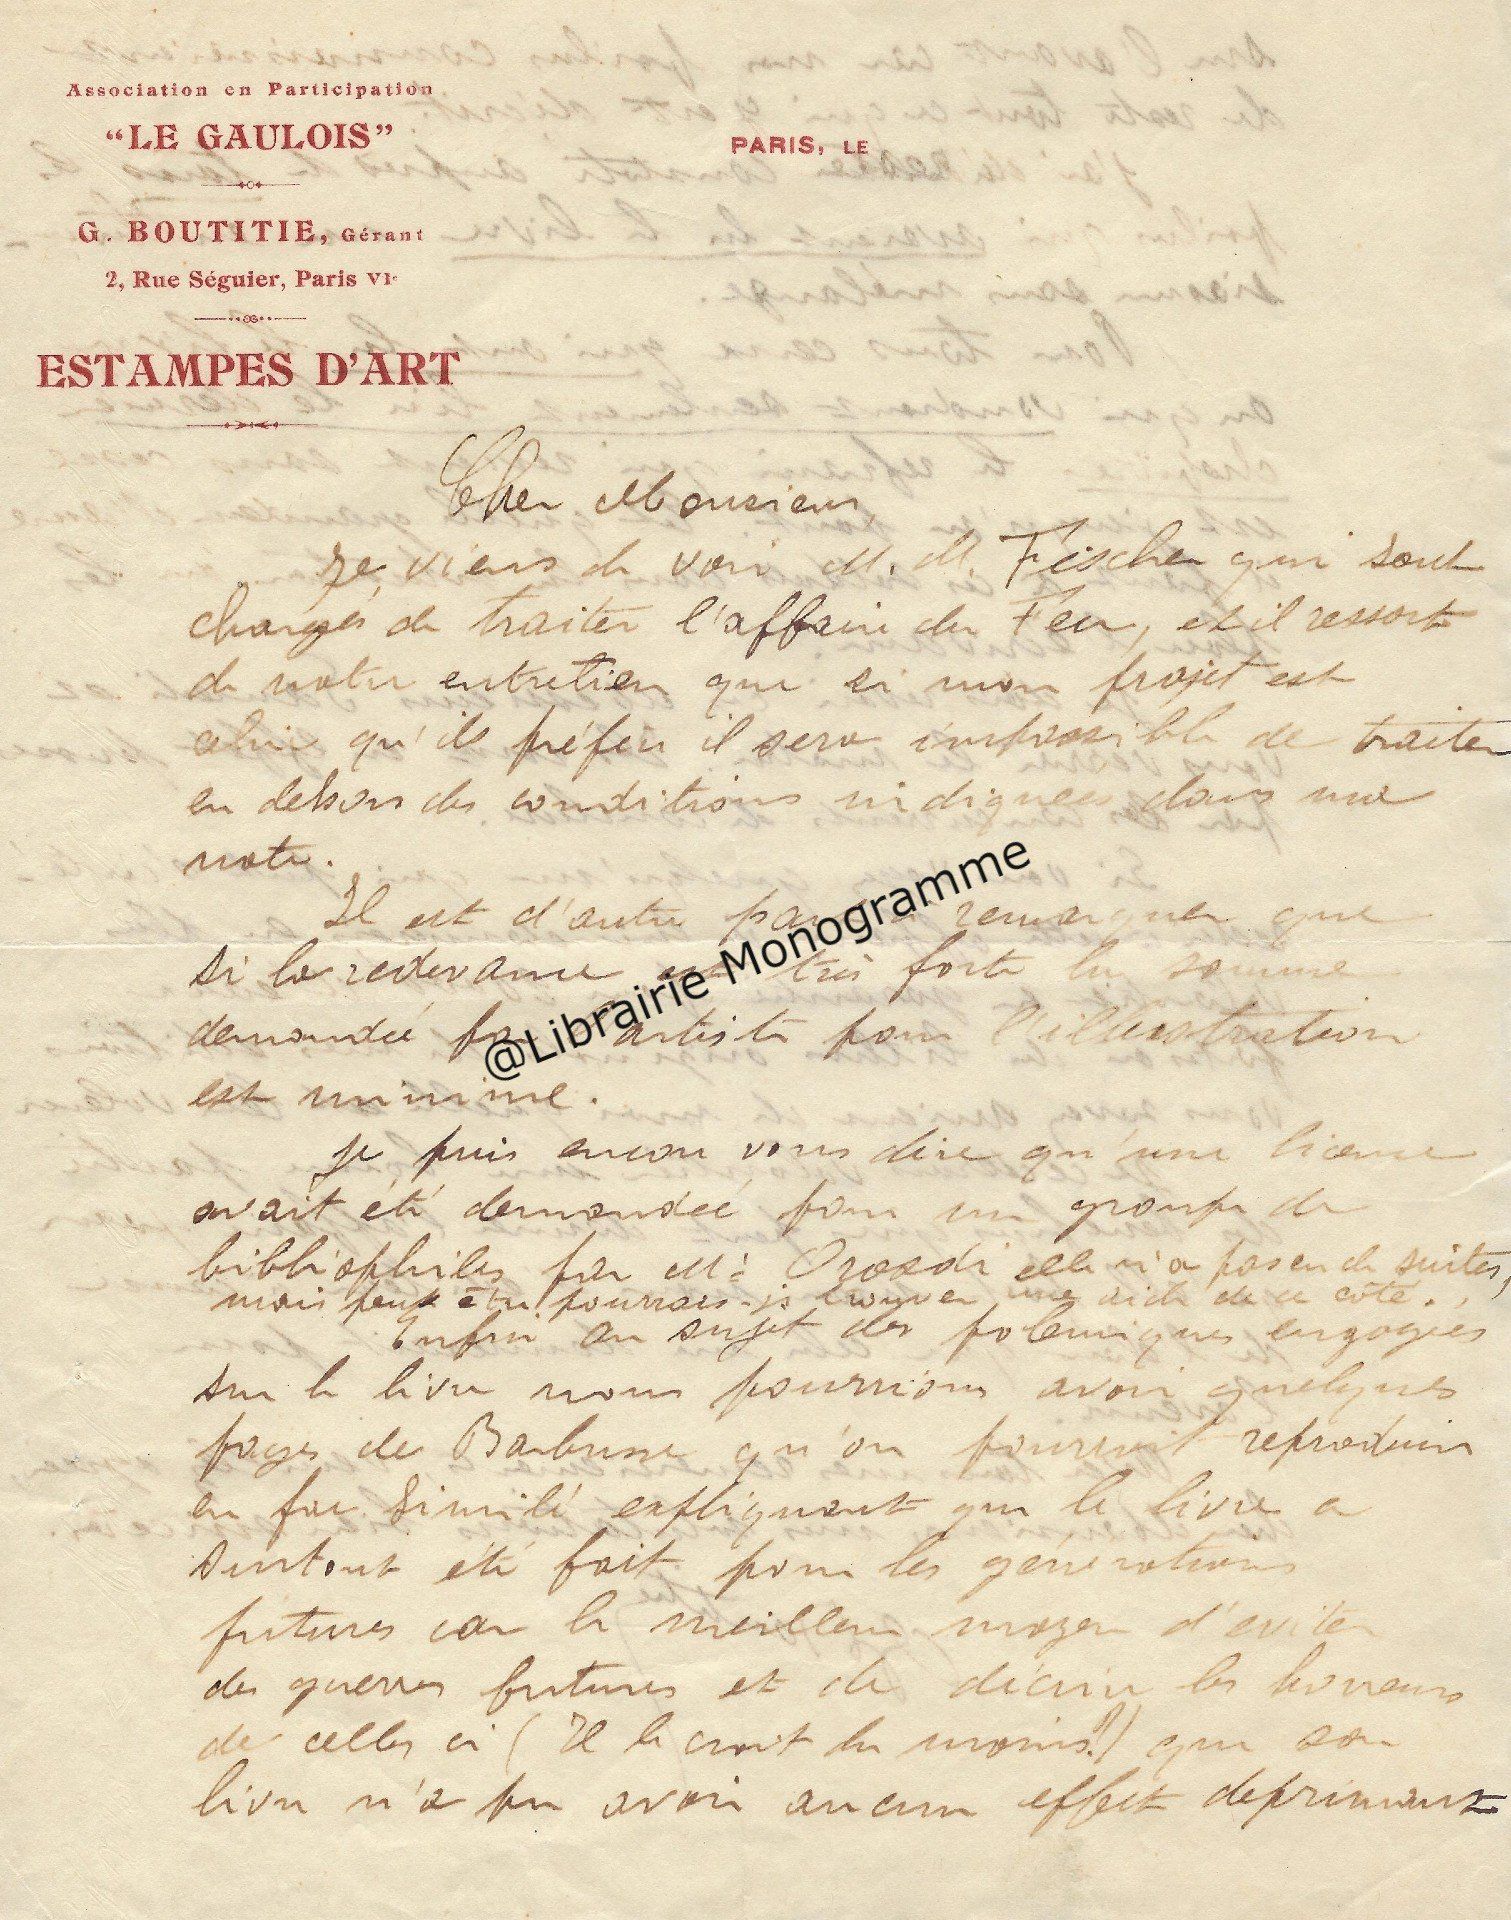 Association en Participation
"LE GAULOIS"
G. BOUTITIE, Gérant
2, Rue Séguier, Paris VIe
ESTAMPES D'ART
PARIS, LE
Cher Monsieur
Je viens de voir M. M. Fischer qui sont
chargés de traiter l'affaire du Feu, et il ressort
de notre entretien que si mon projet est
celui qu'ils préfère il sera impossible de traiter
en dehors des conditions indiquées dans ma
note.
Il est d'autre part à remarquer que
si la redevance est très forte la somme
demandée par l'artiste pour l'illustration
est minime.
Je puis encore vous dire qu'une licence
avait été demandée pour un groupe de
bibliophiles par Mr Orosdi elle n'a pas eu de suites,
mais peut être pourrais-je trouver une aide de ce côté.
Enfin au sujet des polemiques engagées
sur le livre nous pourrions avoir quelques
pages de Barbusse qu'on pourrait reproduire
en fac similé expliquant que le livre a
surtout été fait pour les générations
futures car le meilleur moyen d'eviter
des guerres futures est de décrire les horreurs
de celles ci (Il le croit du moins!) que son
livre n'a pu avoir aucun effet deprimant
@Librairie Monogramme